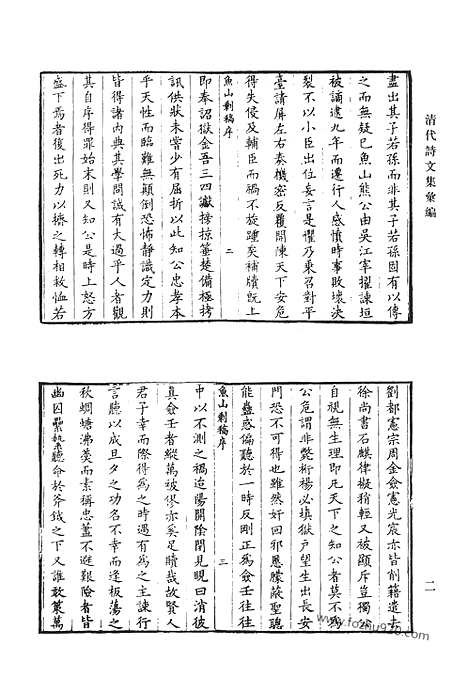 清代詩文集彙編
盡出其子若孫而非其子若孫固有以傳
之而無疑已魚山熊公由吳江宰擢諫垣
被謫逮九年而遷行人感憤時事敗壞決
裂不以小臣出位妄言是懼乃乘召對平
臺請屏左右奏機密反覆開陳天下安危
得失侵及輔臣而禍不旋踵矣補牘既上
魚山剩稿序
二
即奉詔獄金吾三四讞搒掠箠楚備極拷
訊供狀未嘗少有屈折以此知公忠孝本
乎天性而臨難無顛倒恐怖靜識定力則
皆得諸內典其學問誠有大過乎人者觀
其自序得罪始末則又知公是時上怒方
盛下焉者後出死力以擠之轉相救恤若
劉都憲宗周金僉憲光宸亦皆削籍遣去
徐尚書石麒律擬稍輕又被顯斥豈獨公
自視無生理即凡天下之知公者莫不為
公危謂非斃桁楊必填獄戶望生出長安
門恐不可得也雖然奸回邪慝朦蔽聖聰
能蠱惑偏聽於一時反剛正為僉壬往往
魚山剩稿序
三
中以不測之禍迨陽開陰閉見晛曰消彼
真僉壬者縱萬被僇亦奚足贖哉故賢人
君子幸而際得為之時遇有為之主諫行
言聽以成旦夕之功名不幸而逢板蕩之
秋蜩螗沸羹而素稱忠藎不逃艱險者皆
幽囚纍縶聽命於斧鉞之下又誰敢冀萬
二